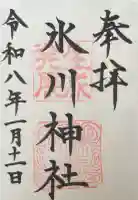 奉拝
氷川神社
令和八年一月十一日